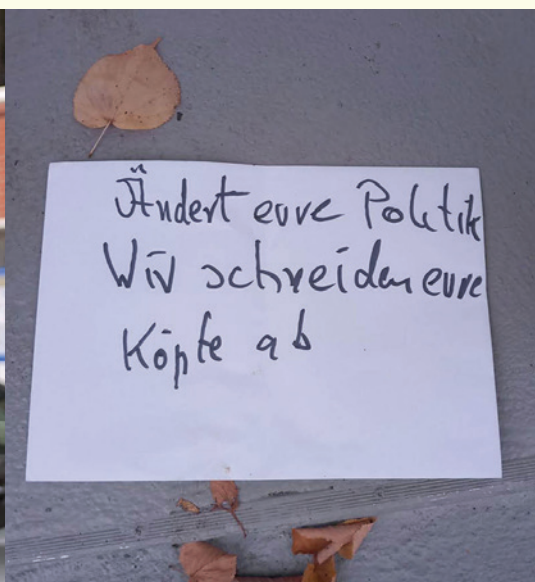 Ändert eure Politik
Wir schreiden eure
Köpfe ab